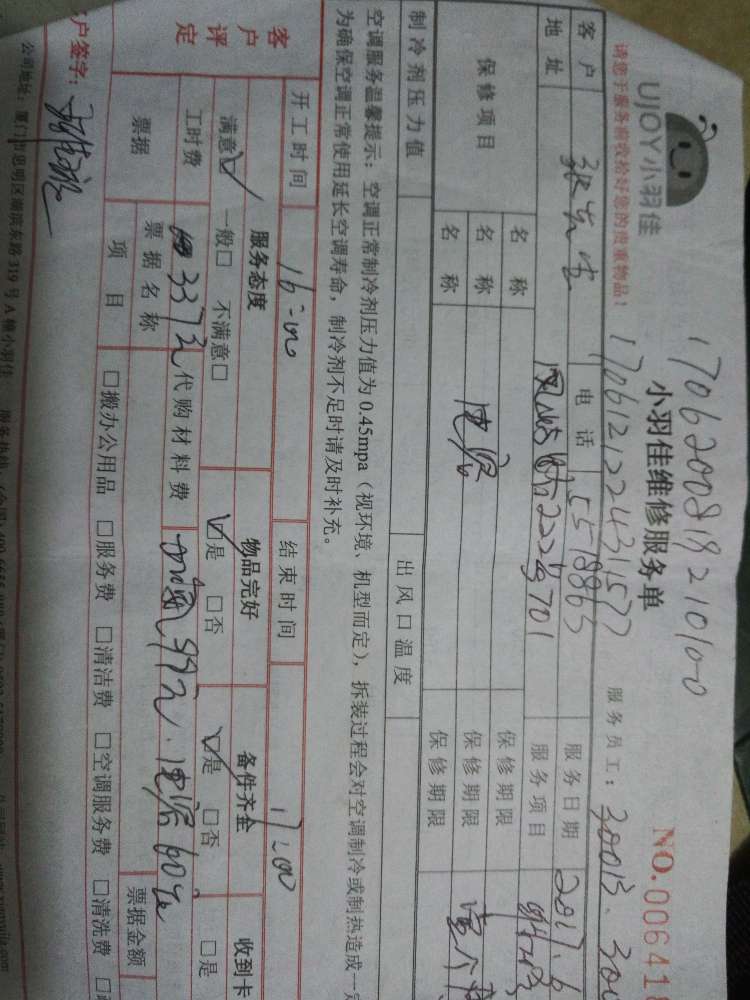 UJOY小羽佳
请您于服务前收拾好您的贵重物品!
1706200819210100
小羽佳维修服务单
NO.00641
17061212243157
服务员工: 30013.
客户 张先生 电话 5578863 服务日期 2017.6
地址 222号701 服务项目
保修项目 名称 保修期限
名称 电容 保修期限
名称 保修期限
制冷剂压力值 出风口温度
空调服务温馨提示:空调正常制冷剂压力值为0.45mpa(视环境、机型而定),拆装过程会对空调制冷或制热造成一
为确保空调正常使用延长空调寿命,制冷剂不足时请及时补充。
开工时间 16:00 结束时间 17:00
客户评定 服务态度 物品完好 备件齐全 收到卡
满意☑ 一般□ 不满意□ ☑是 □否 ☑是 □否 □是
工时费 337元 代购材料费 99元.电容60元
票据 票据名称 票据金额
项目 □搬办公用品 □服务费 □清洁费 □空调服务费 □清洗费
户签字:
公司地址:厦门市思明区湖滨东路319号A幢小羽佳